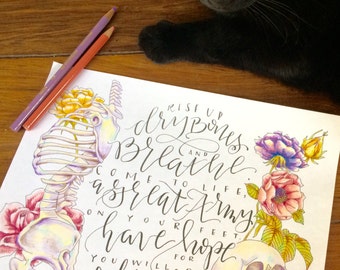 RISE UP
dry Bones
AND
Breathe,
COME TO LIFE,
a great Army
ON YOUR FEET
have hope
FOR
YOU WILL